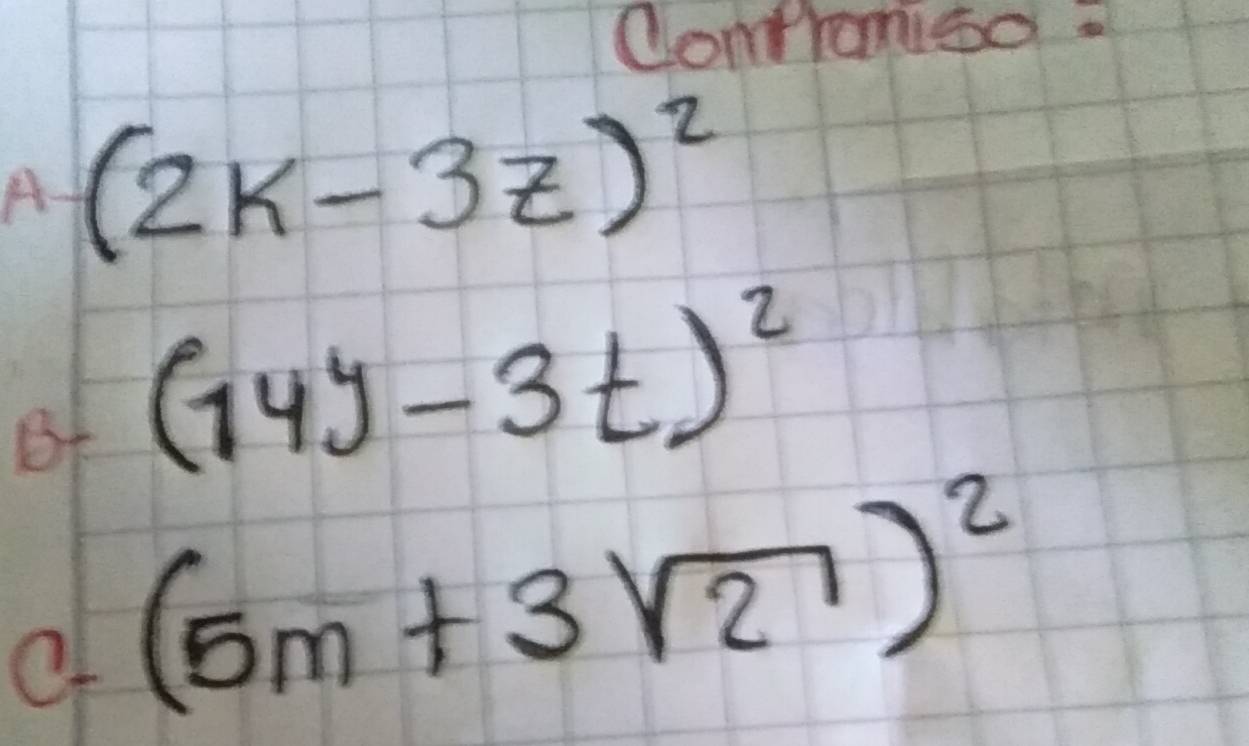 Compromiso:
A- (2K - 3z)²
B- (14y - 3t)²
C- (5m + 3√2)²